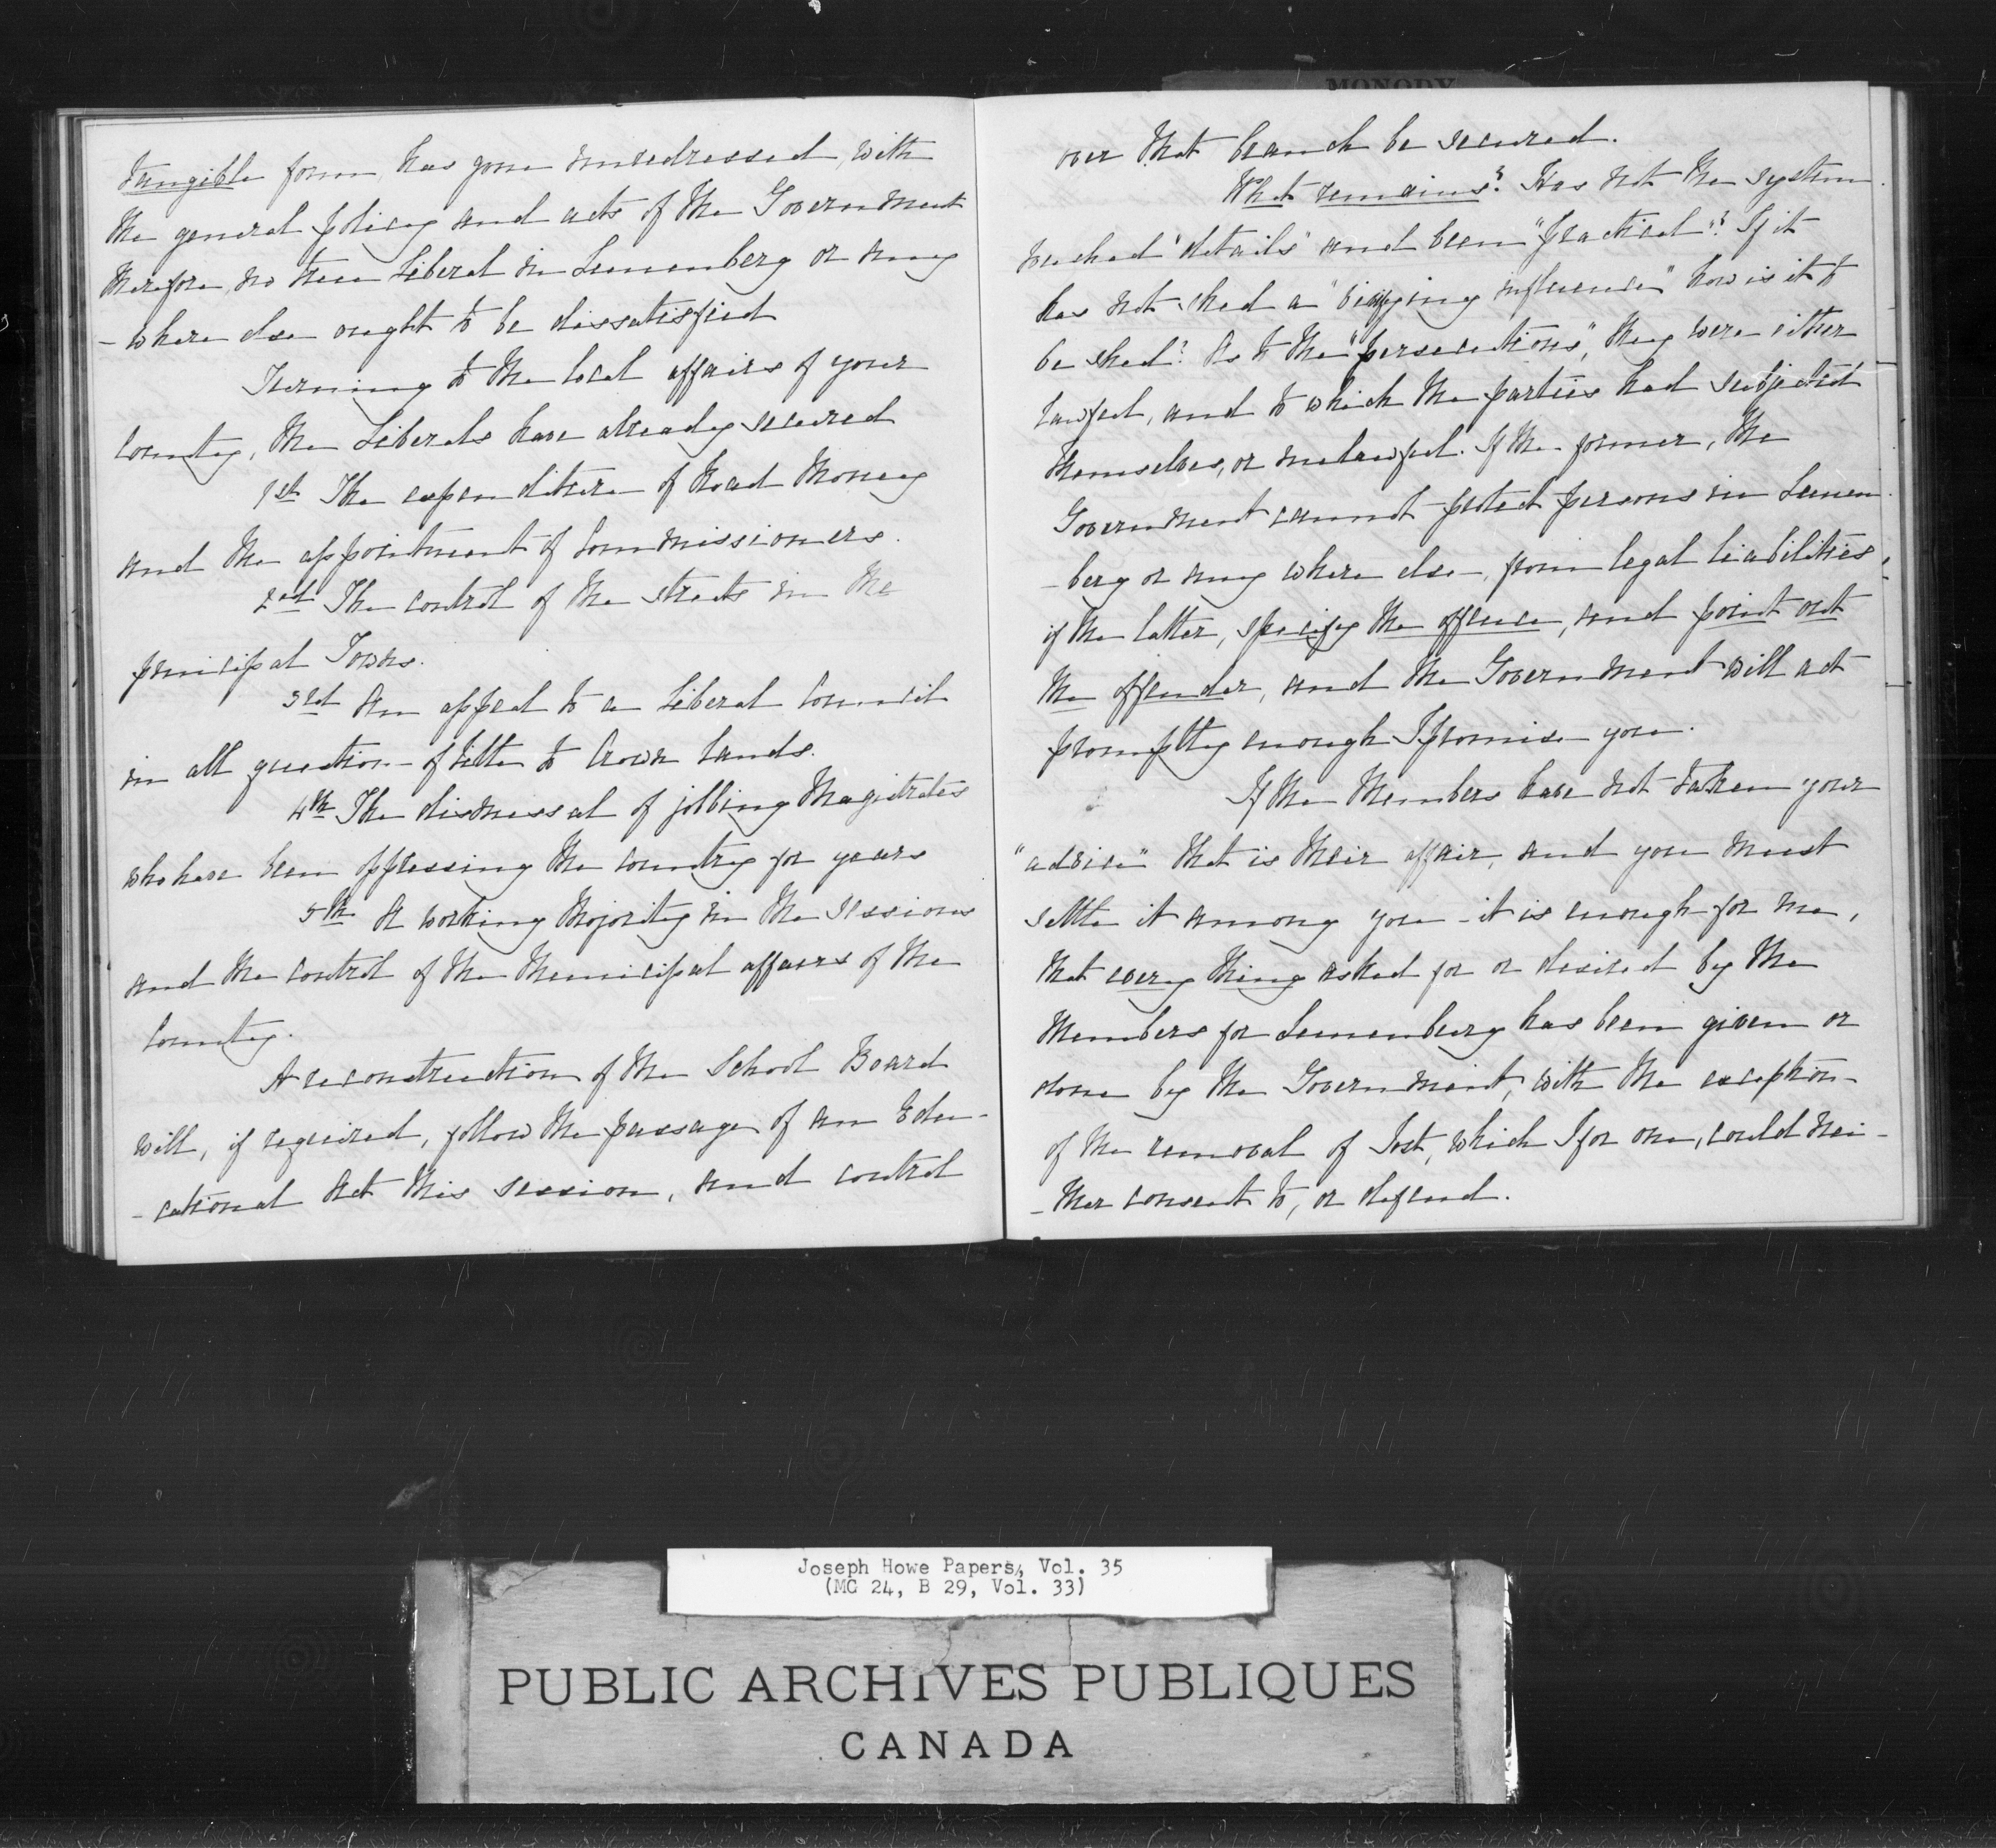 MONODY
tangible form, has gone unredressed, with
the general policy and acts of the Government
therefore, no true Liberal in Lunenberg or any
- where else ought to be dissatisfied
Turning to the local affairs of your
County, the Liberals have already secured
1st The expenditure of Road Money
and the appointment of Commissioners.
2nd The control of the streets in the
principal Towns.
3rd An appeal to a Liberal Council
in all question of title to Crown Lands.
4th The dismissal of jobbing Magistrates
who have been oppressing the country for years
5th A working Majority in the Sessions
and the control of the Municipal affairs of the
County.
A reconstruction of the School Board
will, if required, follow the passage of an Edu-
- cational Act this session, and control
over that branch be secured.
What remains? Has not the system
reached "details" and been "practical"? If it
has not shed a influence" how is it to
be shed? As to the "persecutions", they were either
lawful, and to which the parties had subjected
themselves, or unlawful. If the former, the
Government cannot protect persons in Lunen
- berg or any where else, from legal liabilities,
if the latter, specify the offence, and point out
the offender, and the Government will act
promptly enough I promise you.
If the Members have not taken your
"advice" that is their affair, and you must
settle it among you - it is enough for me,
that every thing asked for or desired by the
Members for Lunenburg has been given or
done by the Government, with the exception
of the removal of Jost, which I for one, could nei-
- ther consent to, or defend.
Joseph Howe Papers, Vol. 35
(MG 24, B 29, Vol. 33)
PUBLIC ARCHIVES PUBLIQUES
CANADA